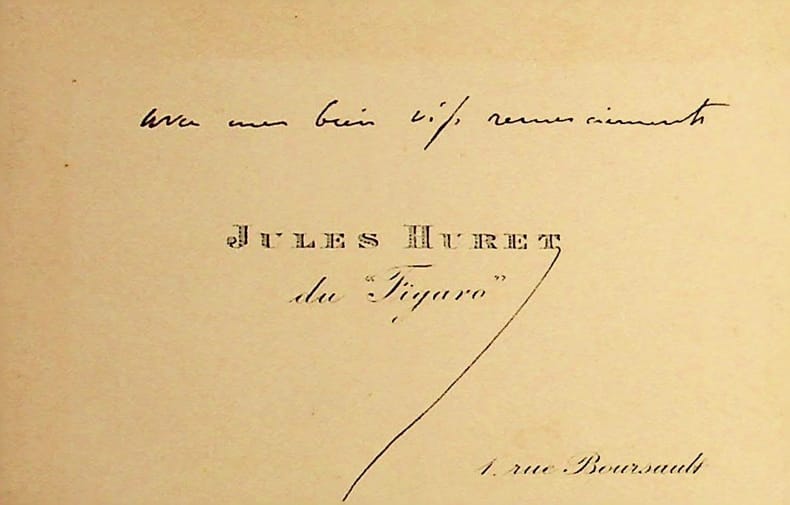 avec mes bien vifs remerciements
JULES HURET
du "Figaro"
1, rue Boursault